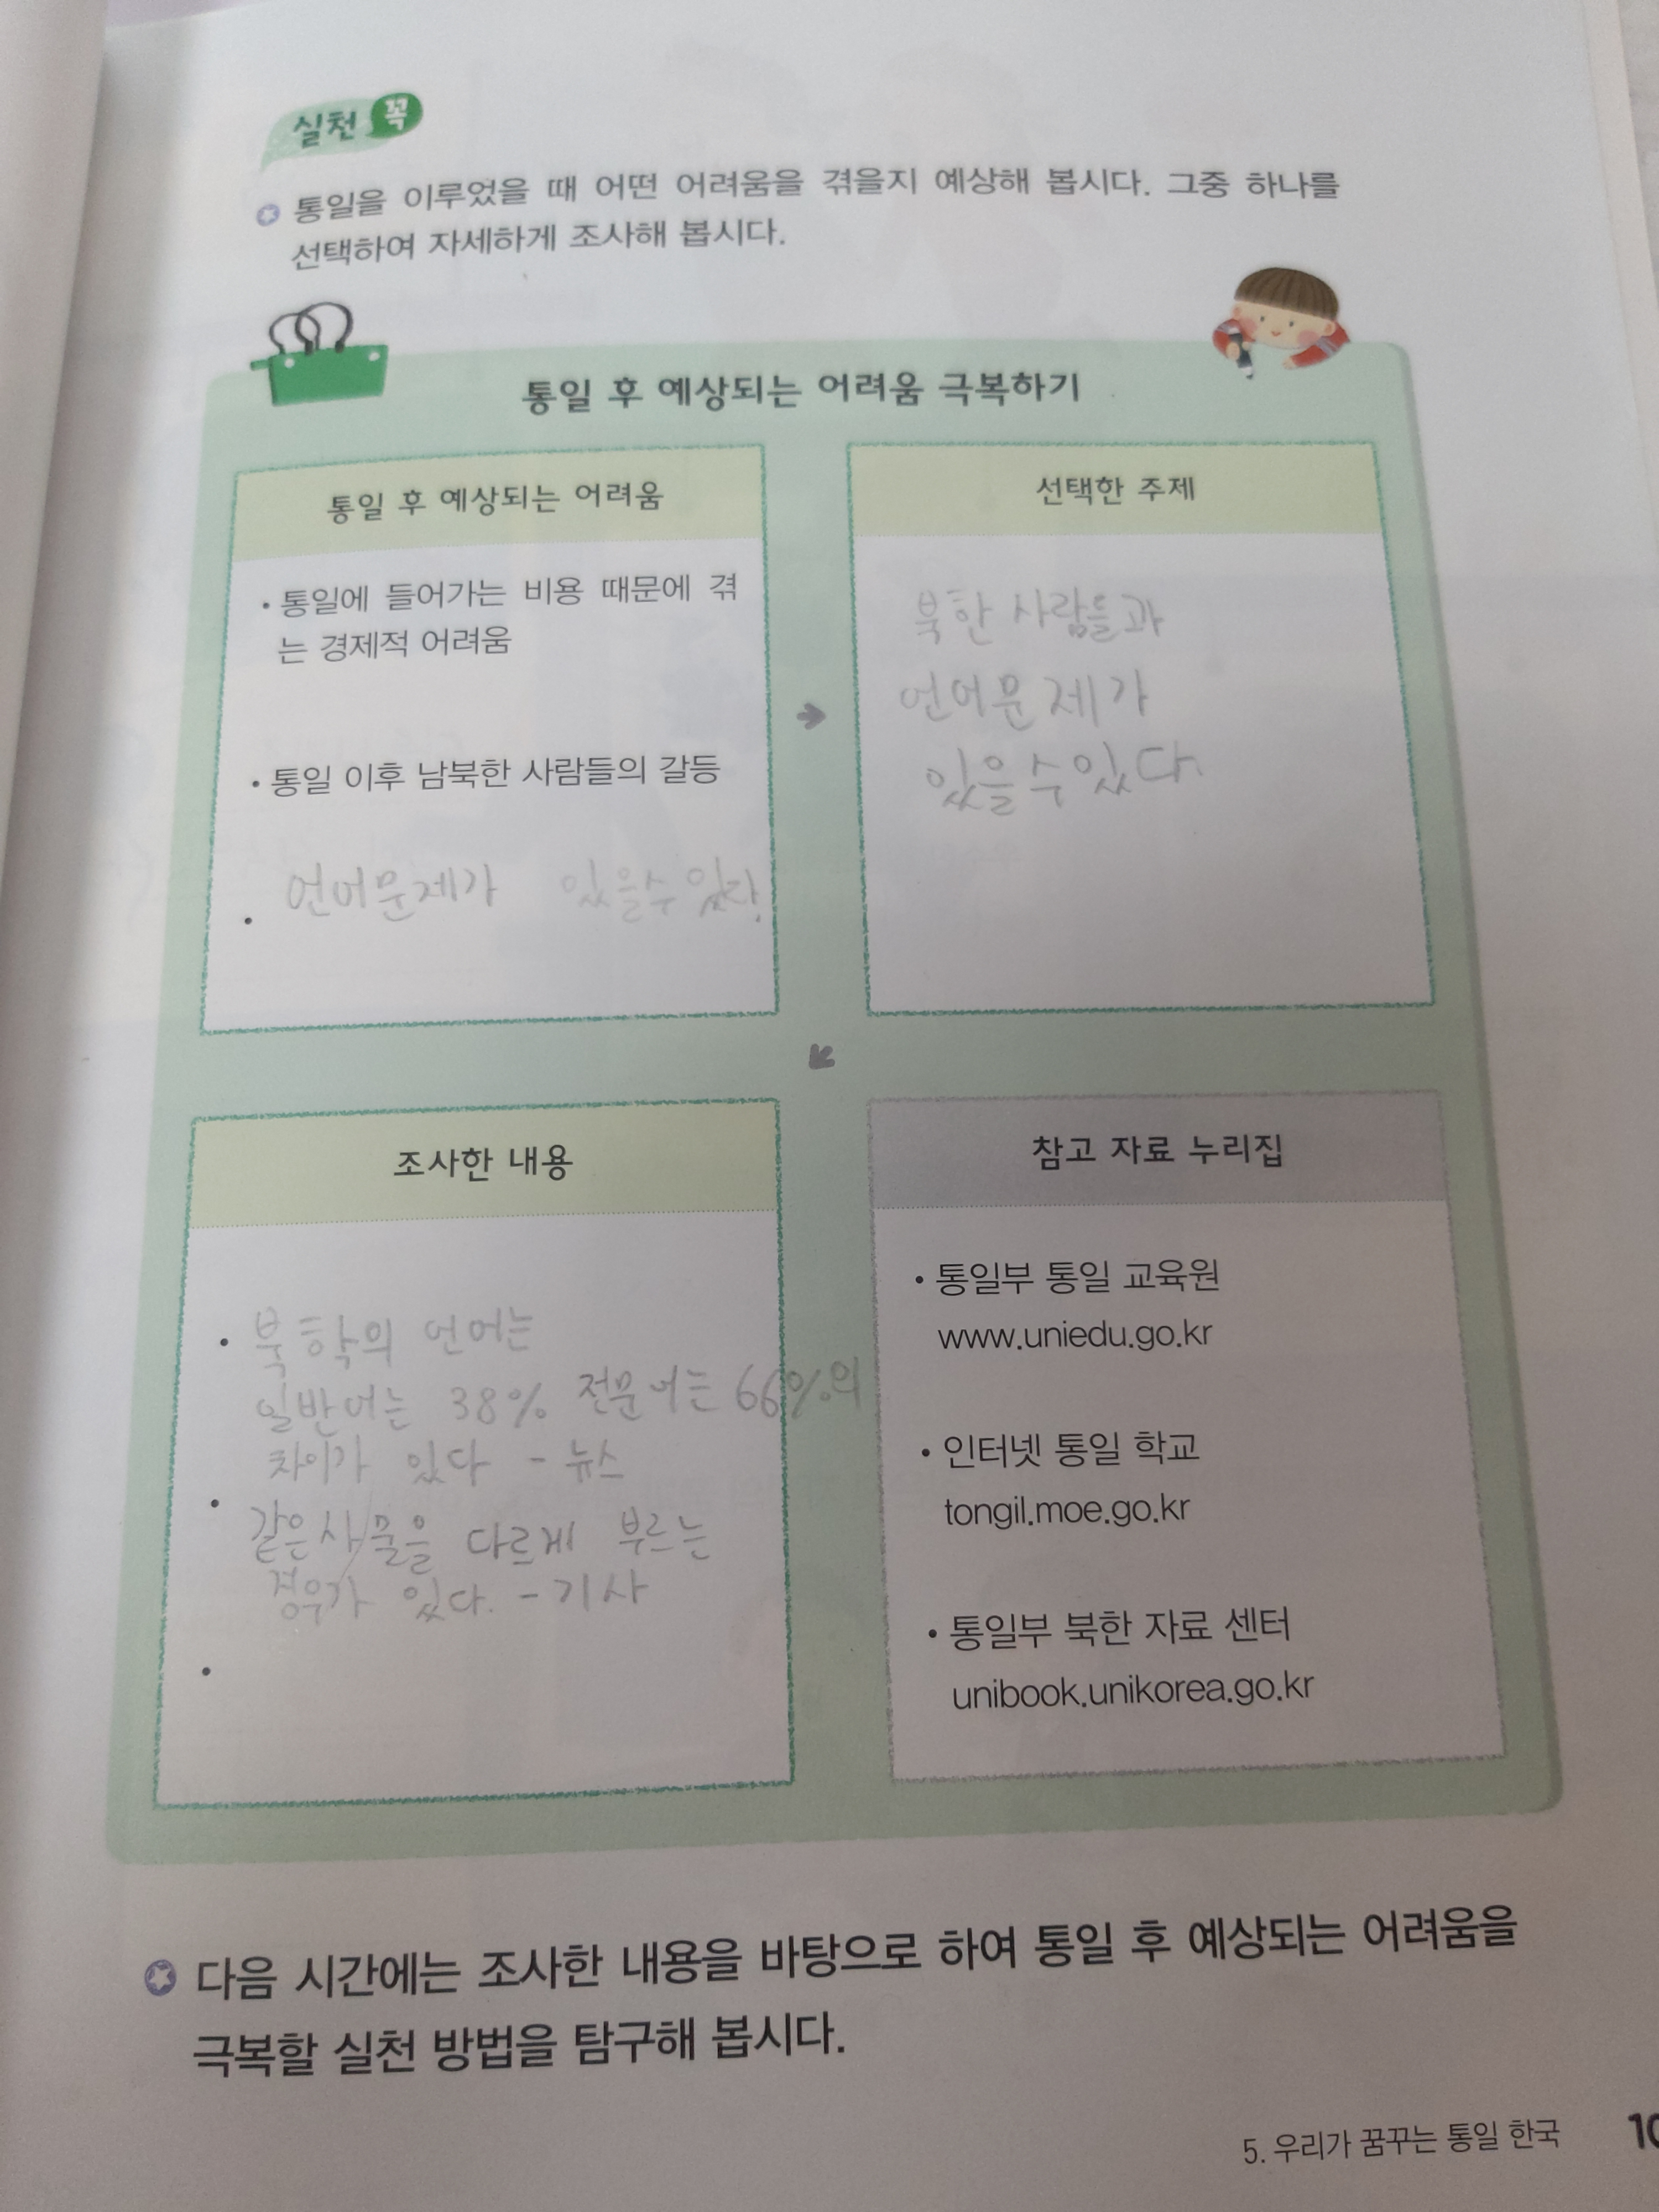 실천 꼭
통일을 이루었을 때 어떤 어려움을 겪을지 예상해 봅시다. 그중 하나를
선택하여 자세하게 조사해 봅시다.
통일 후 예상되는 어려움 극복하기
통일 후 예상되는 어려움
• 통일에 들어가는 비용 때문에 겪
는 경제적 어려움
• 통일 이후 남북한 사람들의 갈등
• 언어문제가 있을수 있다.
선택한 주제
북한 사람들과
언어문제가
있을수있다.
조사한 내용
• 북한의 언어는
일반어는 38% 전문어는 66%의
차이가 있다 - 뉴스
• 같은사물을 다르게 부르는
경우가 있다. - 기사
•
참고 자료 누리집
• 통일부 통일 교육원
www.uniedu.go.kr
• 인터넷 통일 학교
tongil.moe.go.kr
• 통일부 북한 자료 센터
unibook.unikorea.go.kr
다음 시간에는 조사한 내용을 바탕으로 하여 통일 후 예상되는 어려움을
극복할 실천 방법을 탐구해 봅시다.
5. 우리가 꿈꾸는 통일 한국